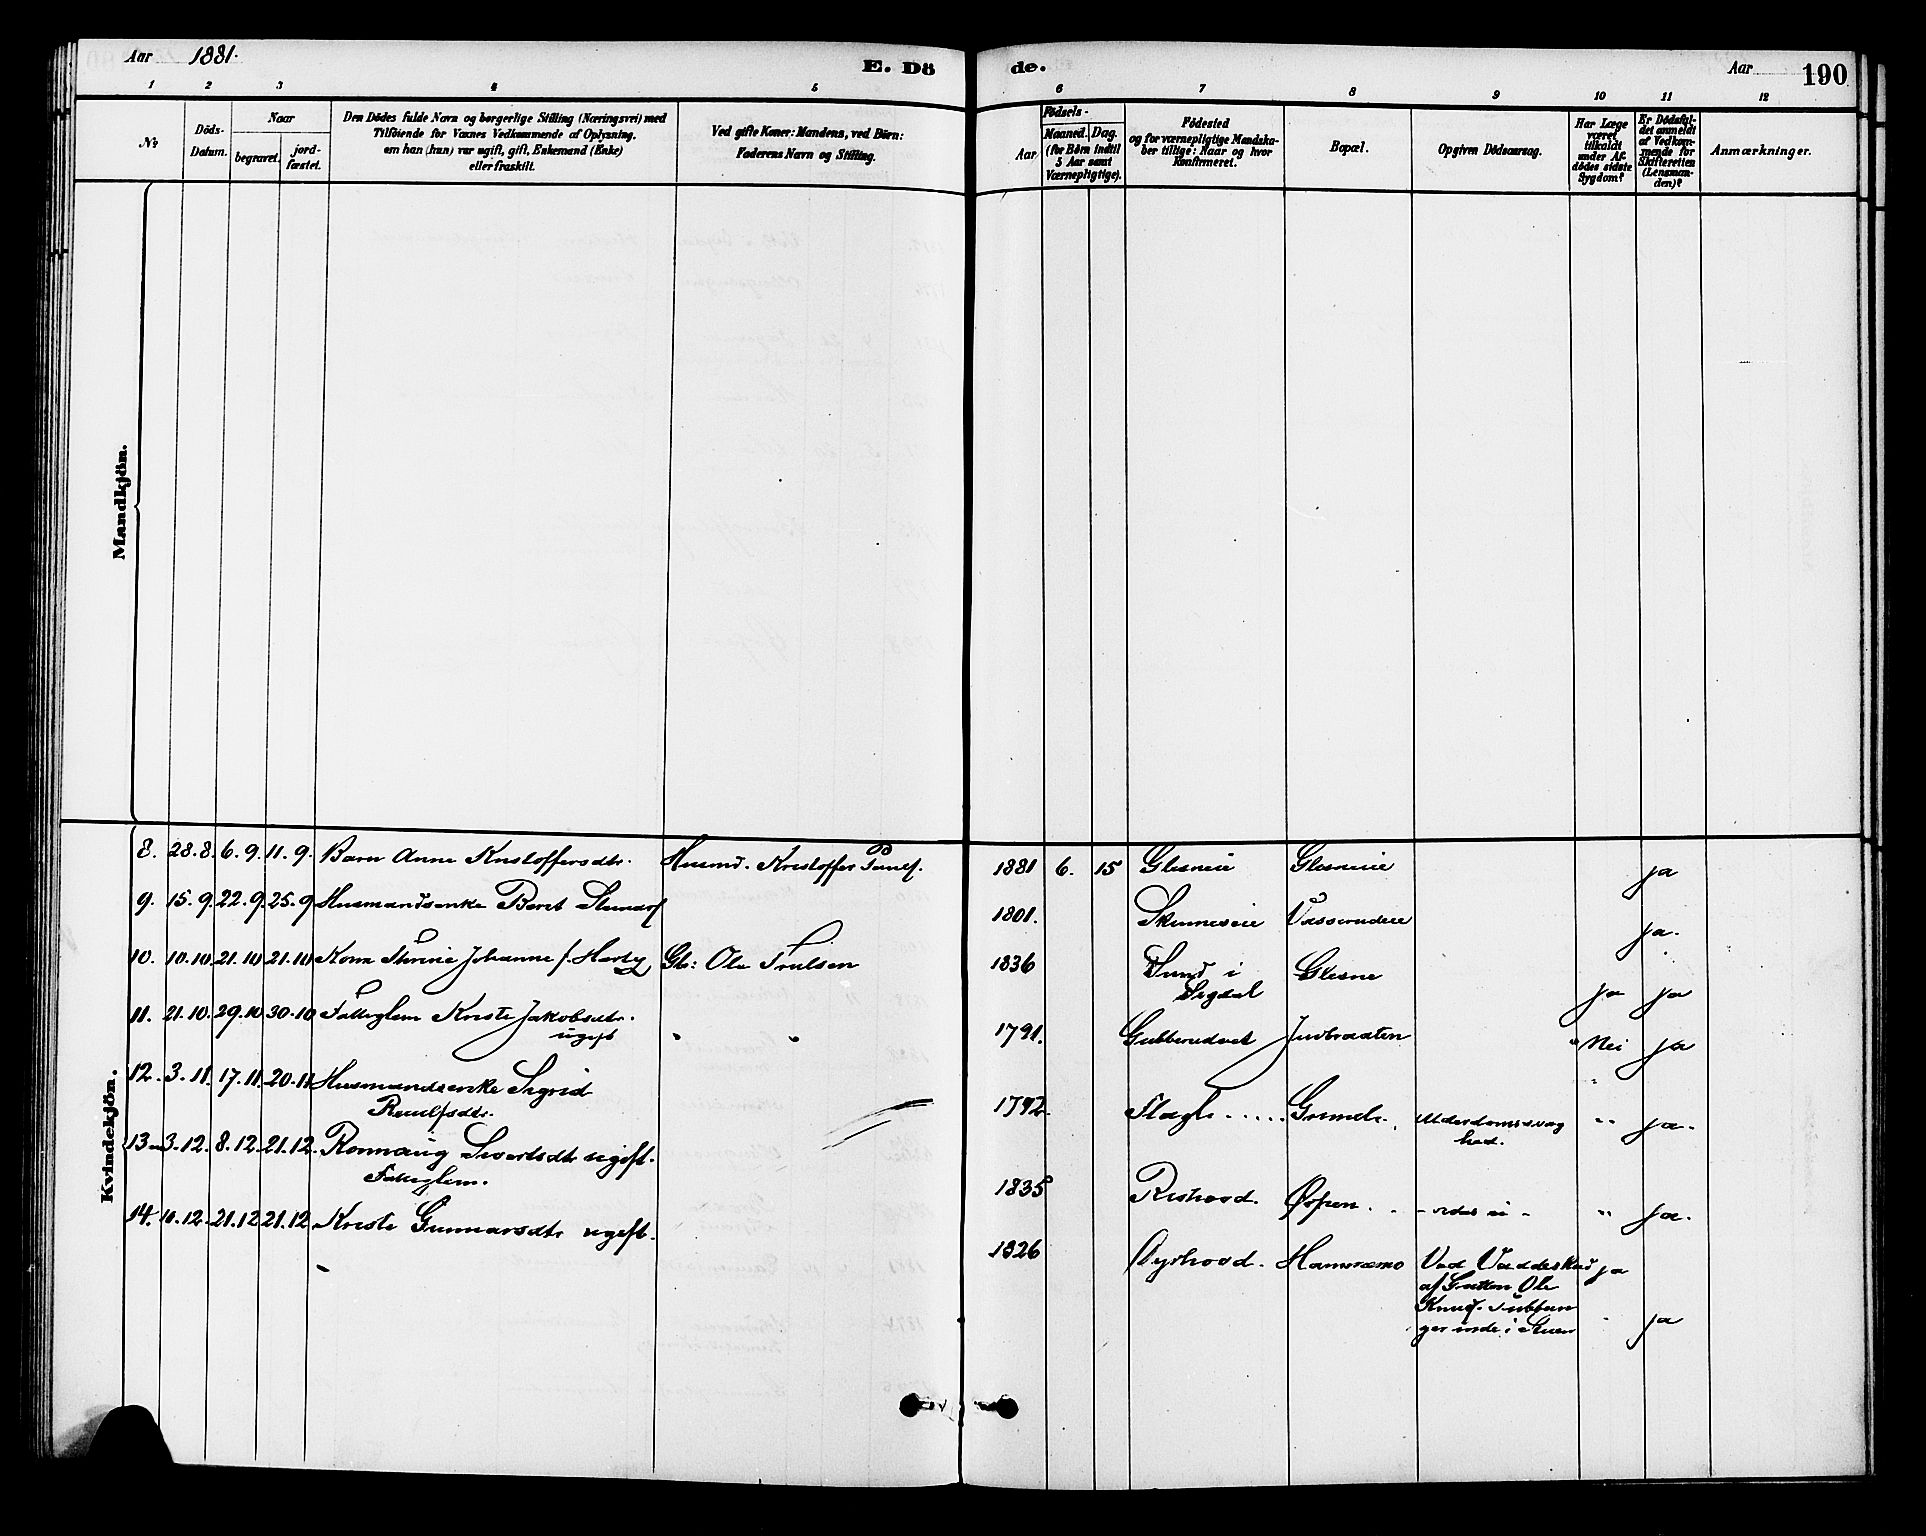 Aar 1881.
E. Dö
de.
Aar
190
1 2 3 4 5
6 7 8 9 10 11 12
№
Döds-
Datum.
Naar
begravet.
jord-
fæstet.
Den Dödes fulde Navn og borgerlige Stilling (Næringsvei) med
Tilföiende for Voxnes Vedkommende af Oplysning,
om han (hun) var ugift, gift, Enkemand (Enke)
eller fraskilt.
Ved gifte Koner: Mandens, ved Börn:
Faderens Navn og Stilling.
Födsels-
Aar
Maaned. Dag.
(for Börn indtil
5 Aar samt
Værnepligtige).
Födested
og for værnepligtige Mandska-
ber tillige: Naar og hvor
Konfirmeret.
Bopæl.
Opgiven Dödsaarsag.
Har Læge
været
tilkaldt
under Af-
dödes sidste
Sygdom?
Er Dödsfal-
det anmeldt
af Vedkom-
mende for
Skifteretten
(Lensman-
den)?
Anmærkninger.
Mandkjön.
Kvindekjön.
8. 28.8. 6.9. 11.9. Barn Anne Kristoffersdtr. Husmd. Kristoffer 1881 6. 15 Glesneie Glesneie ja
9. 15.9. 22.9. 25.9 Husmandsenke Beret 1801. Skinneseie ja.
10. 10.10. 21.10 21.10 Kone Johanne Gb: Ole Trulsen 1836 Sund i Glesne ja ja
Sigdal
11. 21.10. 29.10 30.10 Fattiglem Kriste Jakobsdtr. 1791. Nei ja
ugift
12. 3.11. 17.11. 20.11 Husmandsenke Sigrid
Paulsdtr. 1792. Alderdomssvag " ja.
hed.
13. 3.12. 8.12. 21.12. Ronnaug Sivertsdtr ugift.
Fattiglem. 1835 Rishovd. " ja.
14. 11.12. 21.12 21.12. Kriste Gunnarsdtr ugift. 1826 Dyrhovd. Ved Vaadeskud ja
af Gutten Ole
Knuds. Tubban
ger inde i Stuen ja